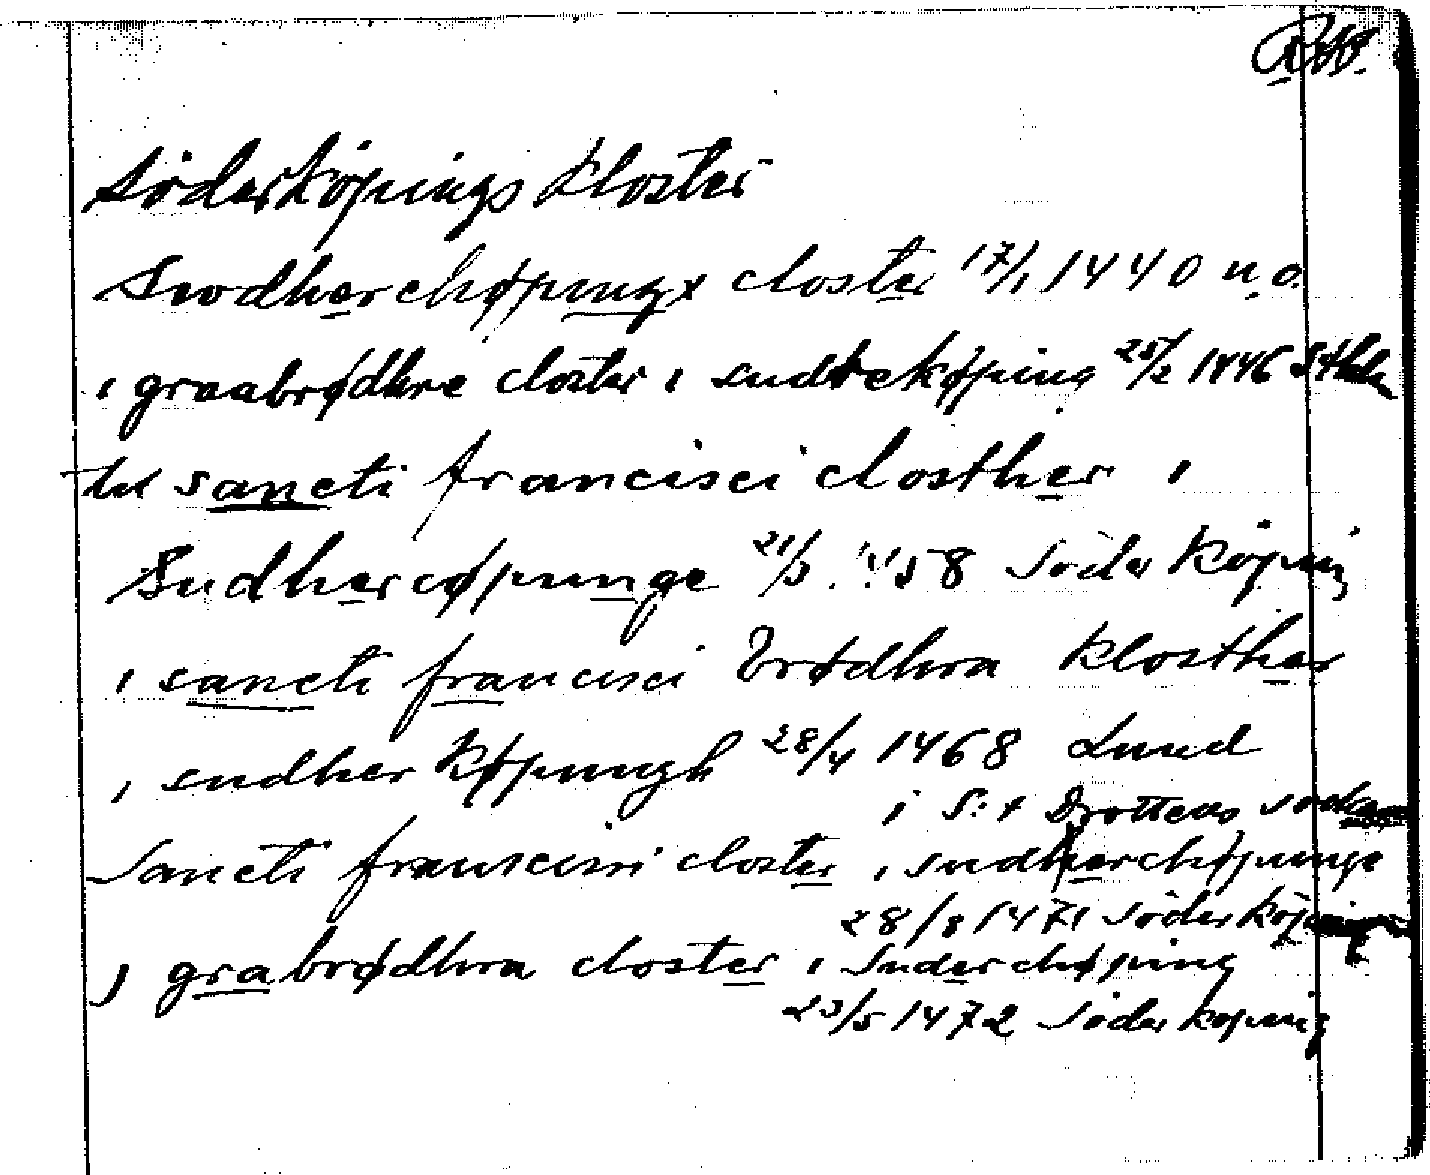 Söderköpings kloster
Swdherchøpungx closter 17/1 1440 u.o.
i graabrødhre closter i sudrekøping 25/2 1446 Sthlm
til sancti francisci closther i
Sudhercøpunge 21/3 1458 Söderköping
i sancti francisci brødhra klosther
i sudherkøpungh 28/4 1468 Lund
i S:t Drottens socken
Sancti franscissi closter i sudherchøpunge
28/8 1471 Söderköping
j grabrødhra closter i Suderchøping
23/5 1472 Söderköping